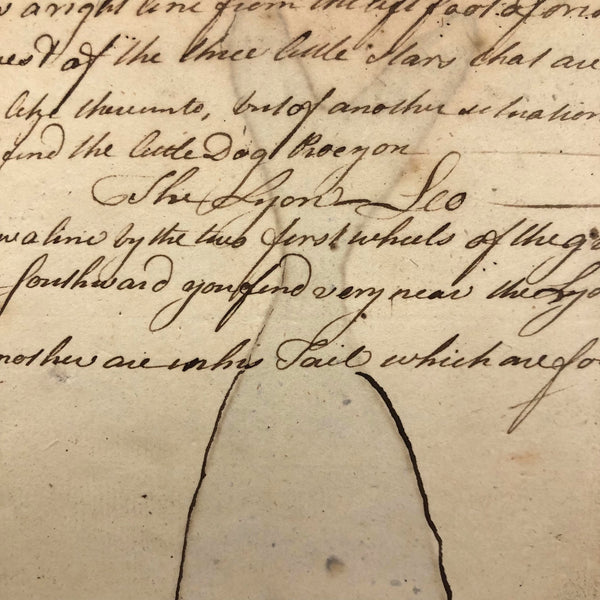 a right line from the left foot of orio
west of the three little stars that are
like thereunto, but of another situation
find the little Dog Procyon
The Lyon Leo
w a line by the two first wheels of the g
Southward you find very near the Lyo
nother are in his Tail which are so